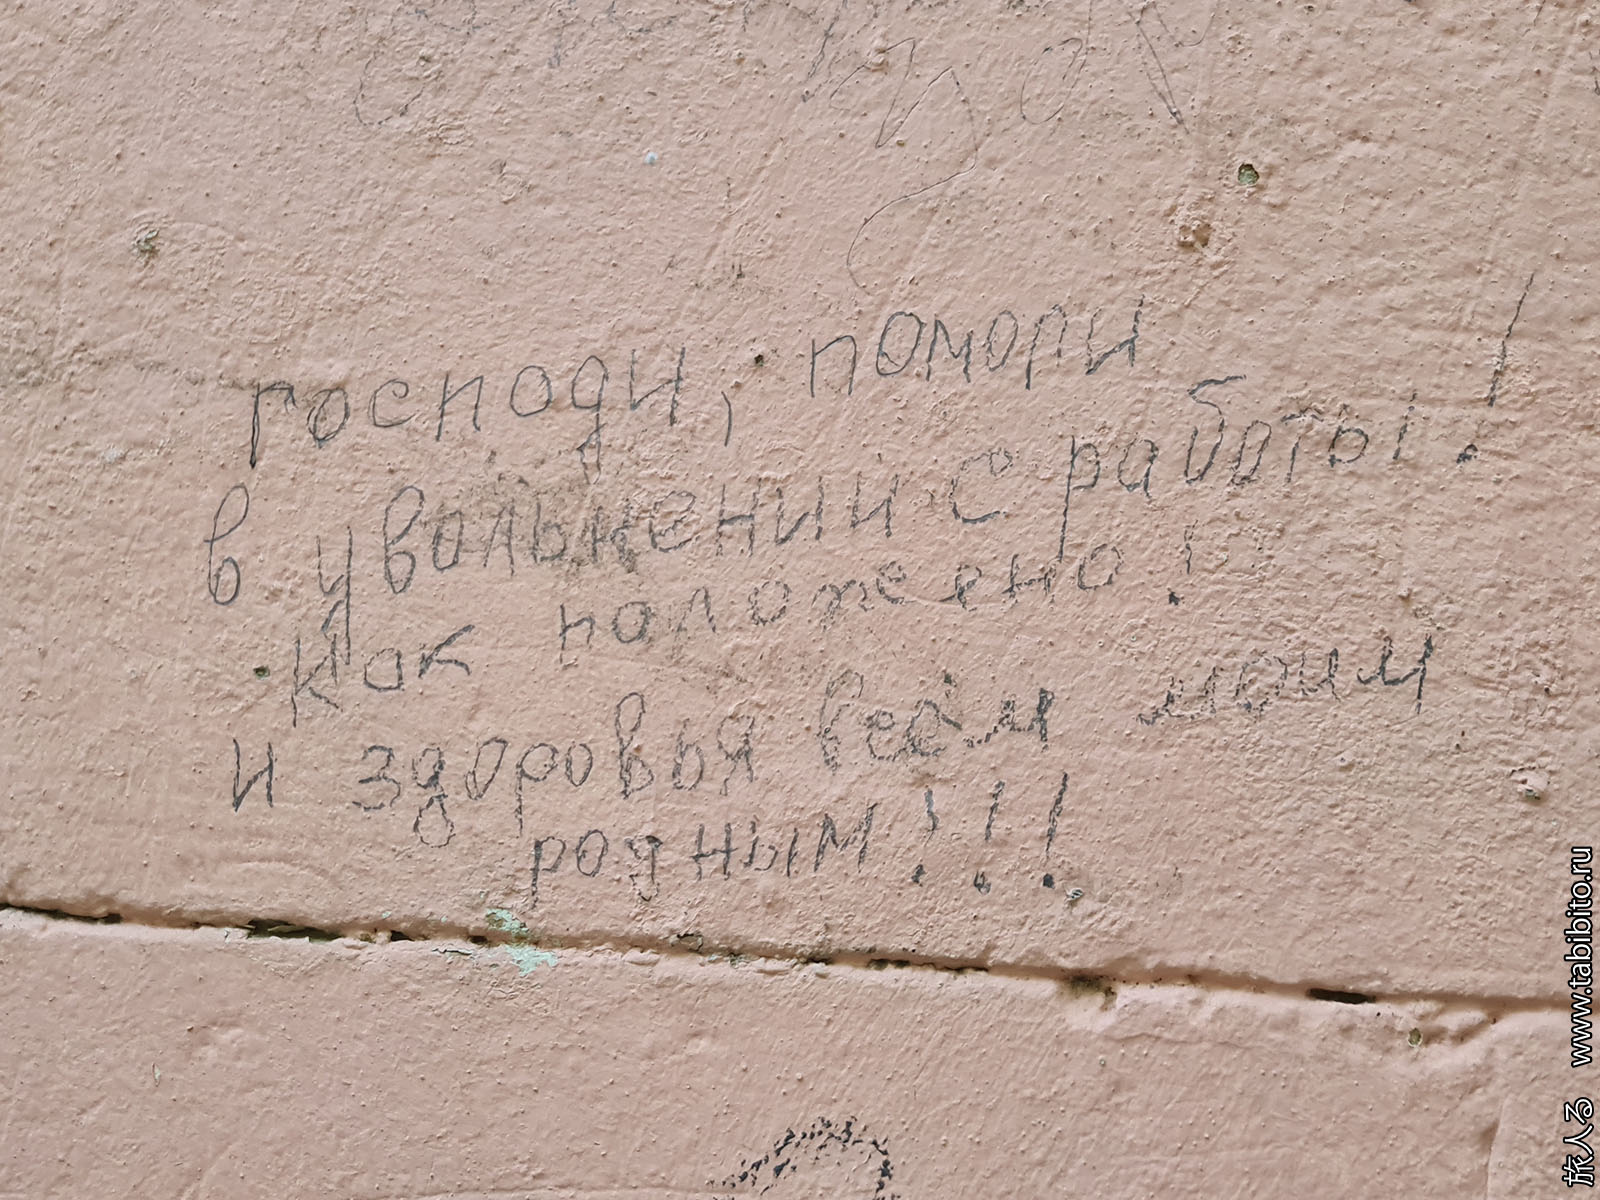 господи, помоги
в увольнении с работы!
как положено!
и здоровья всем моим
родным!!!
旅人る www.tabibito.ru